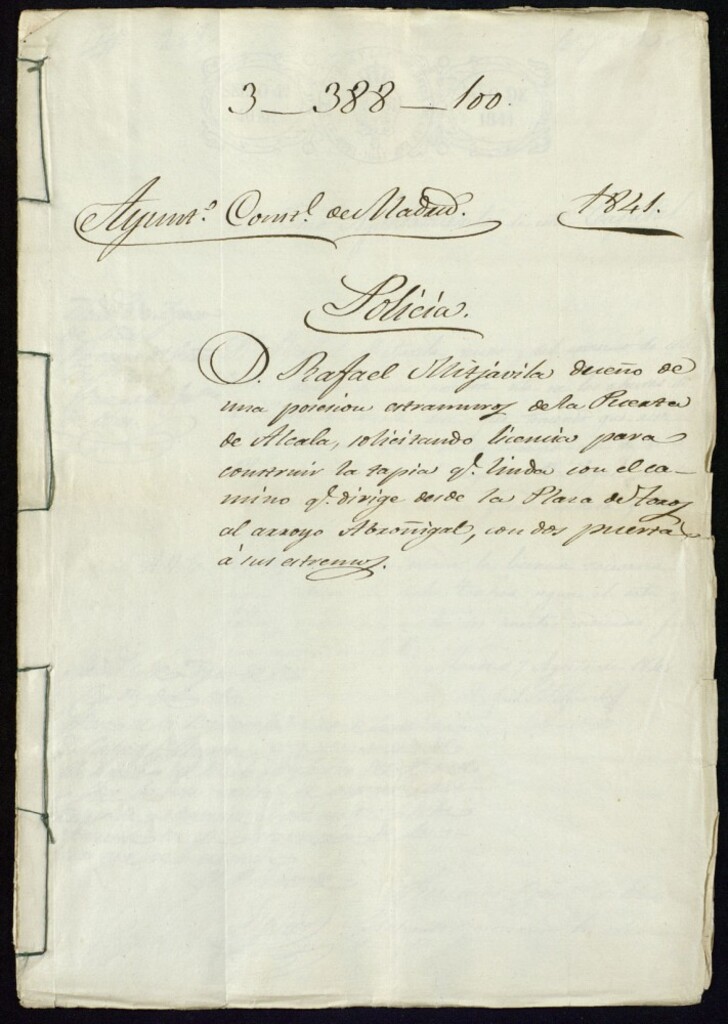 3 — 388 — 100.
Ayunt.º Const.l de Madrid. 1841.
Policía.
D. Rafael Mitjavila dueño de
una posesion estramuros de la Puerta
de Alcala, solicitando licencia para
construir la tapia q.e linda con el ca-
mino q.e dirige desde la Plaza de Toros
al arroyo Abroñigal, con dos puertas
á sus estremos.